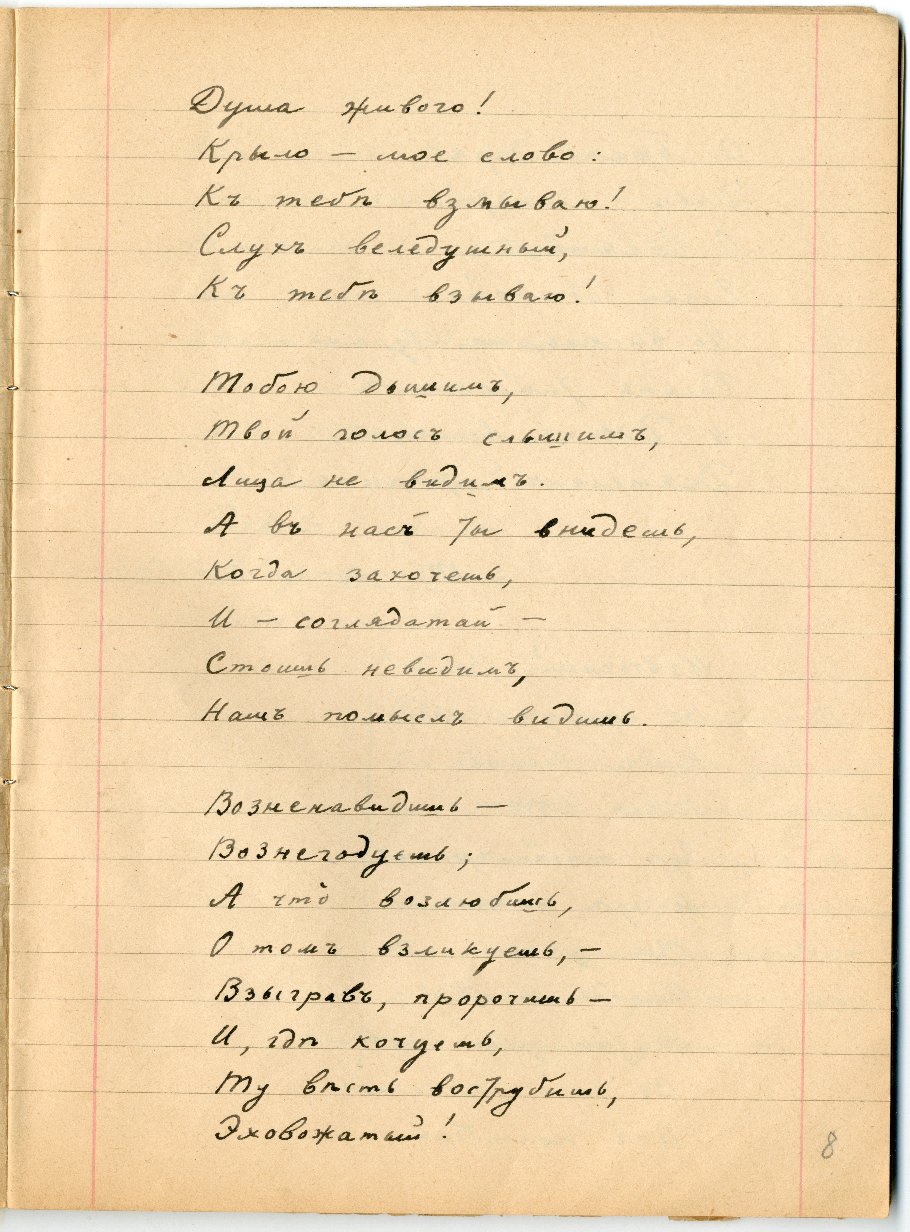 Душа живого!
Крыло — мое слово:
Къ тебѣ взмываю!
Слухъ веледушный,
Къ тебѣ взываю!
Тобою дышимъ,
Твой голосъ слышимъ,
Лица не видимъ.
А въ насъ ты внидешь,
Когда захочешь,
И — соглядатай —
Стоишь невидимъ,
Нашъ помыслъ видишь.
Возненавидишь —
Вознегодуешь;
А что̀ возлюбишь,
О томъ взликуешь, —
Взыгравъ, пророчишь —
И, гдѣ кочуешь,
Ту вѣсть вострубишь,
Эховожатый!
8